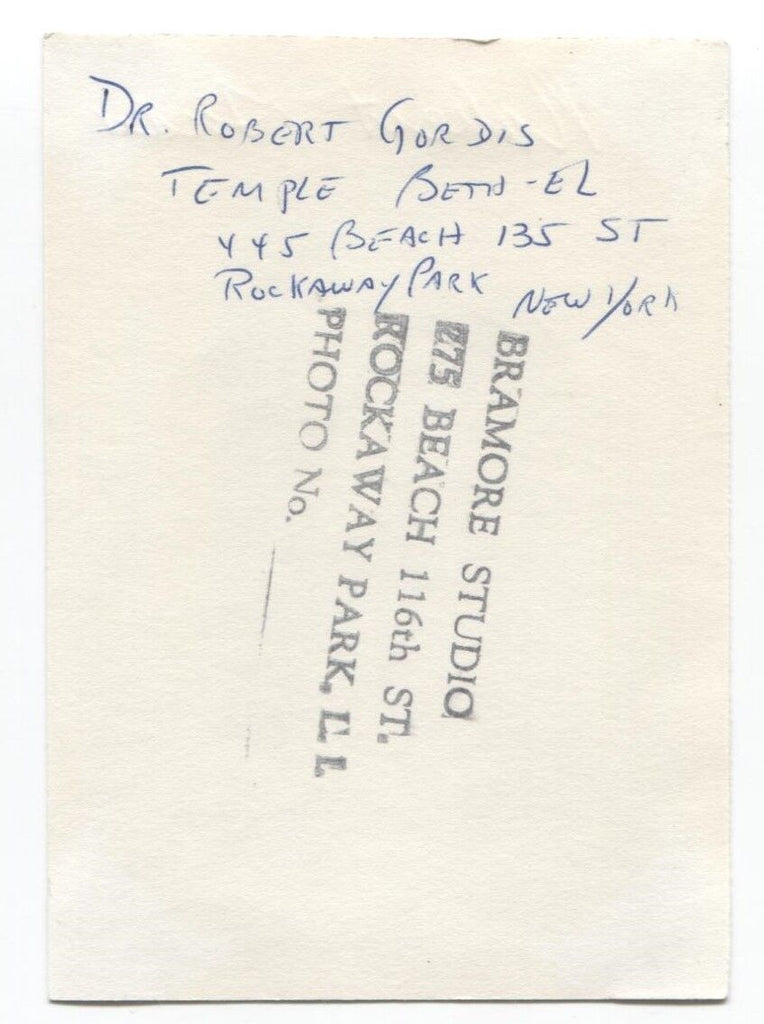 DR. ROBERT GORDIS
TEMPLE BETH-EL
445 BEACH 135 ST
ROCKAWAY PARK NEW YORK
BRAMORE STUDIO
275 BEACH 116th ST.
ROCKAWAY PARK, L. I.
PHOTO No.